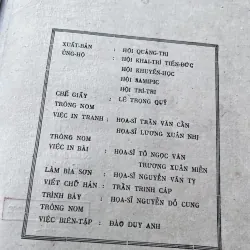 XUẤT-BẢN : HỘI QUẢNG-TRI
ỦNG-HỘ : HỘI KHAI-TRÍ TIẾN-ĐỨC
HỘI KHUYẾN-HỌC
HỘI SAMIPIC
HỘI TRÍ-TRI
CHẾ GIẤY : LÊ TRỌNG QUỸ
TRÔNG NOM
VIỆC IN TRANH : HỌA-SĨ TRẦN VĂN CẨN
HỌA-SĨ LƯƠNG XUÂN NHỊ
TRÔNG NOM
VIỆC IN BÀI : HỌA-SĨ TÔ NGỌC VÂN
TRƯƠNG XUÂN MIÊN
LÀM BÌA SƠN : HỌA-SĨ NGUYỄN VĂN TỴ
VIẾT CHỮ HÁN : TRẦN TRINH CÁP
TRÌNH BÀY : HỌA-SĨ NGUYỄN ĐỖ CUNG
TRÔNG NOM
VIỆC BIÊN-TẬP : ĐÀO DUY ANH